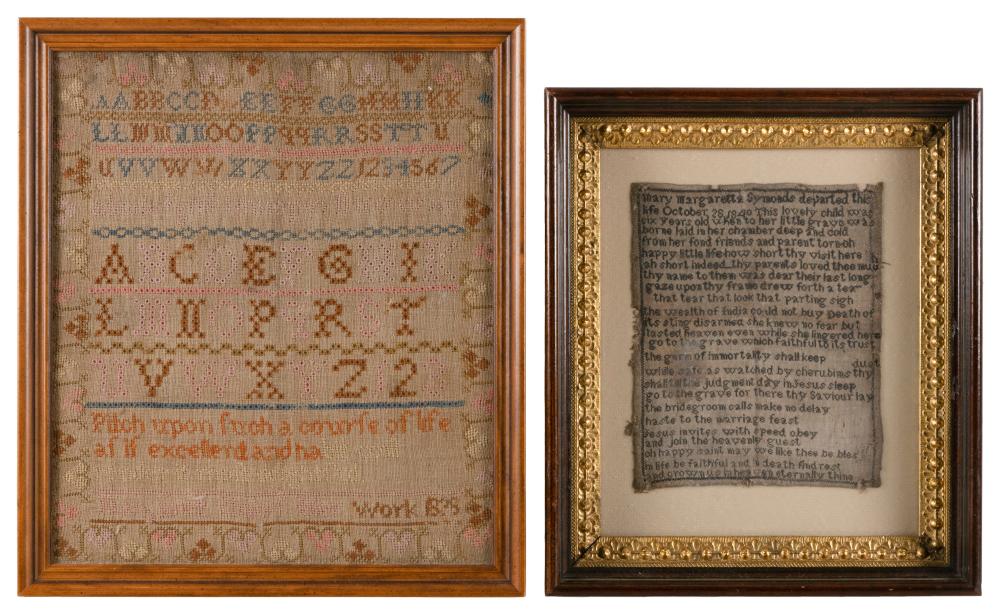 AABBCCD EEFFGGHHKK
LLMMNNOOPPqqRRSSTTU
UVVWWXXYYZZ1234567
A C E G I
L N P R T
V X Z 2
Pitch upon such a course of life
as is excellent and ha
Work 1825
Mary Margaretta Symonds departed this
life October 28 1840 This lovely child was
six years old when to her little grave was
borne laid in her chamber deep and cold
from her fond friends and parent torn oh
happy little life how short thy visit here
ah short indeed thy parents loved thee much
thy name to them was dear their last long
gaze upon thy frame drew forth a tear
that tear that look that parting sigh
the wealth of India could not buy Death of
its sting disarmed she knew no fear but
tasted heaven even while she lingered here
go to the grave which faithful to its trust
the germ of immortality shall keep
dust
while safe as watched by cherubims thy
shall till the judgment day in Jesus sleep
go to the grave for there thy Saviour lay
the bridegroom calls make no delay
haste to the marriage feast
Jesus invites with speed obey
and join the heavenly guest
oh happy saint may we like thee be bles
in life be faithful and in death find rest
and crown us in heaven eternally thine